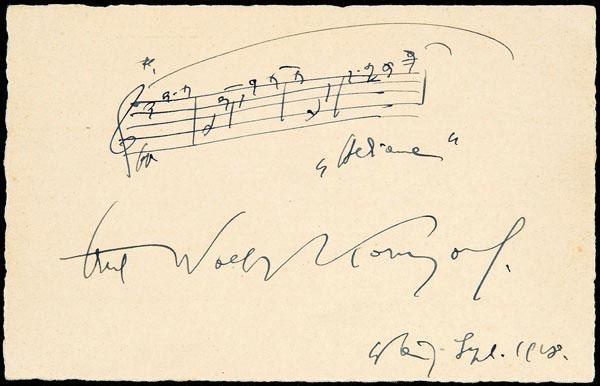 „Heliane“
Erich Wolfg Korngold.
Sept. 1928.